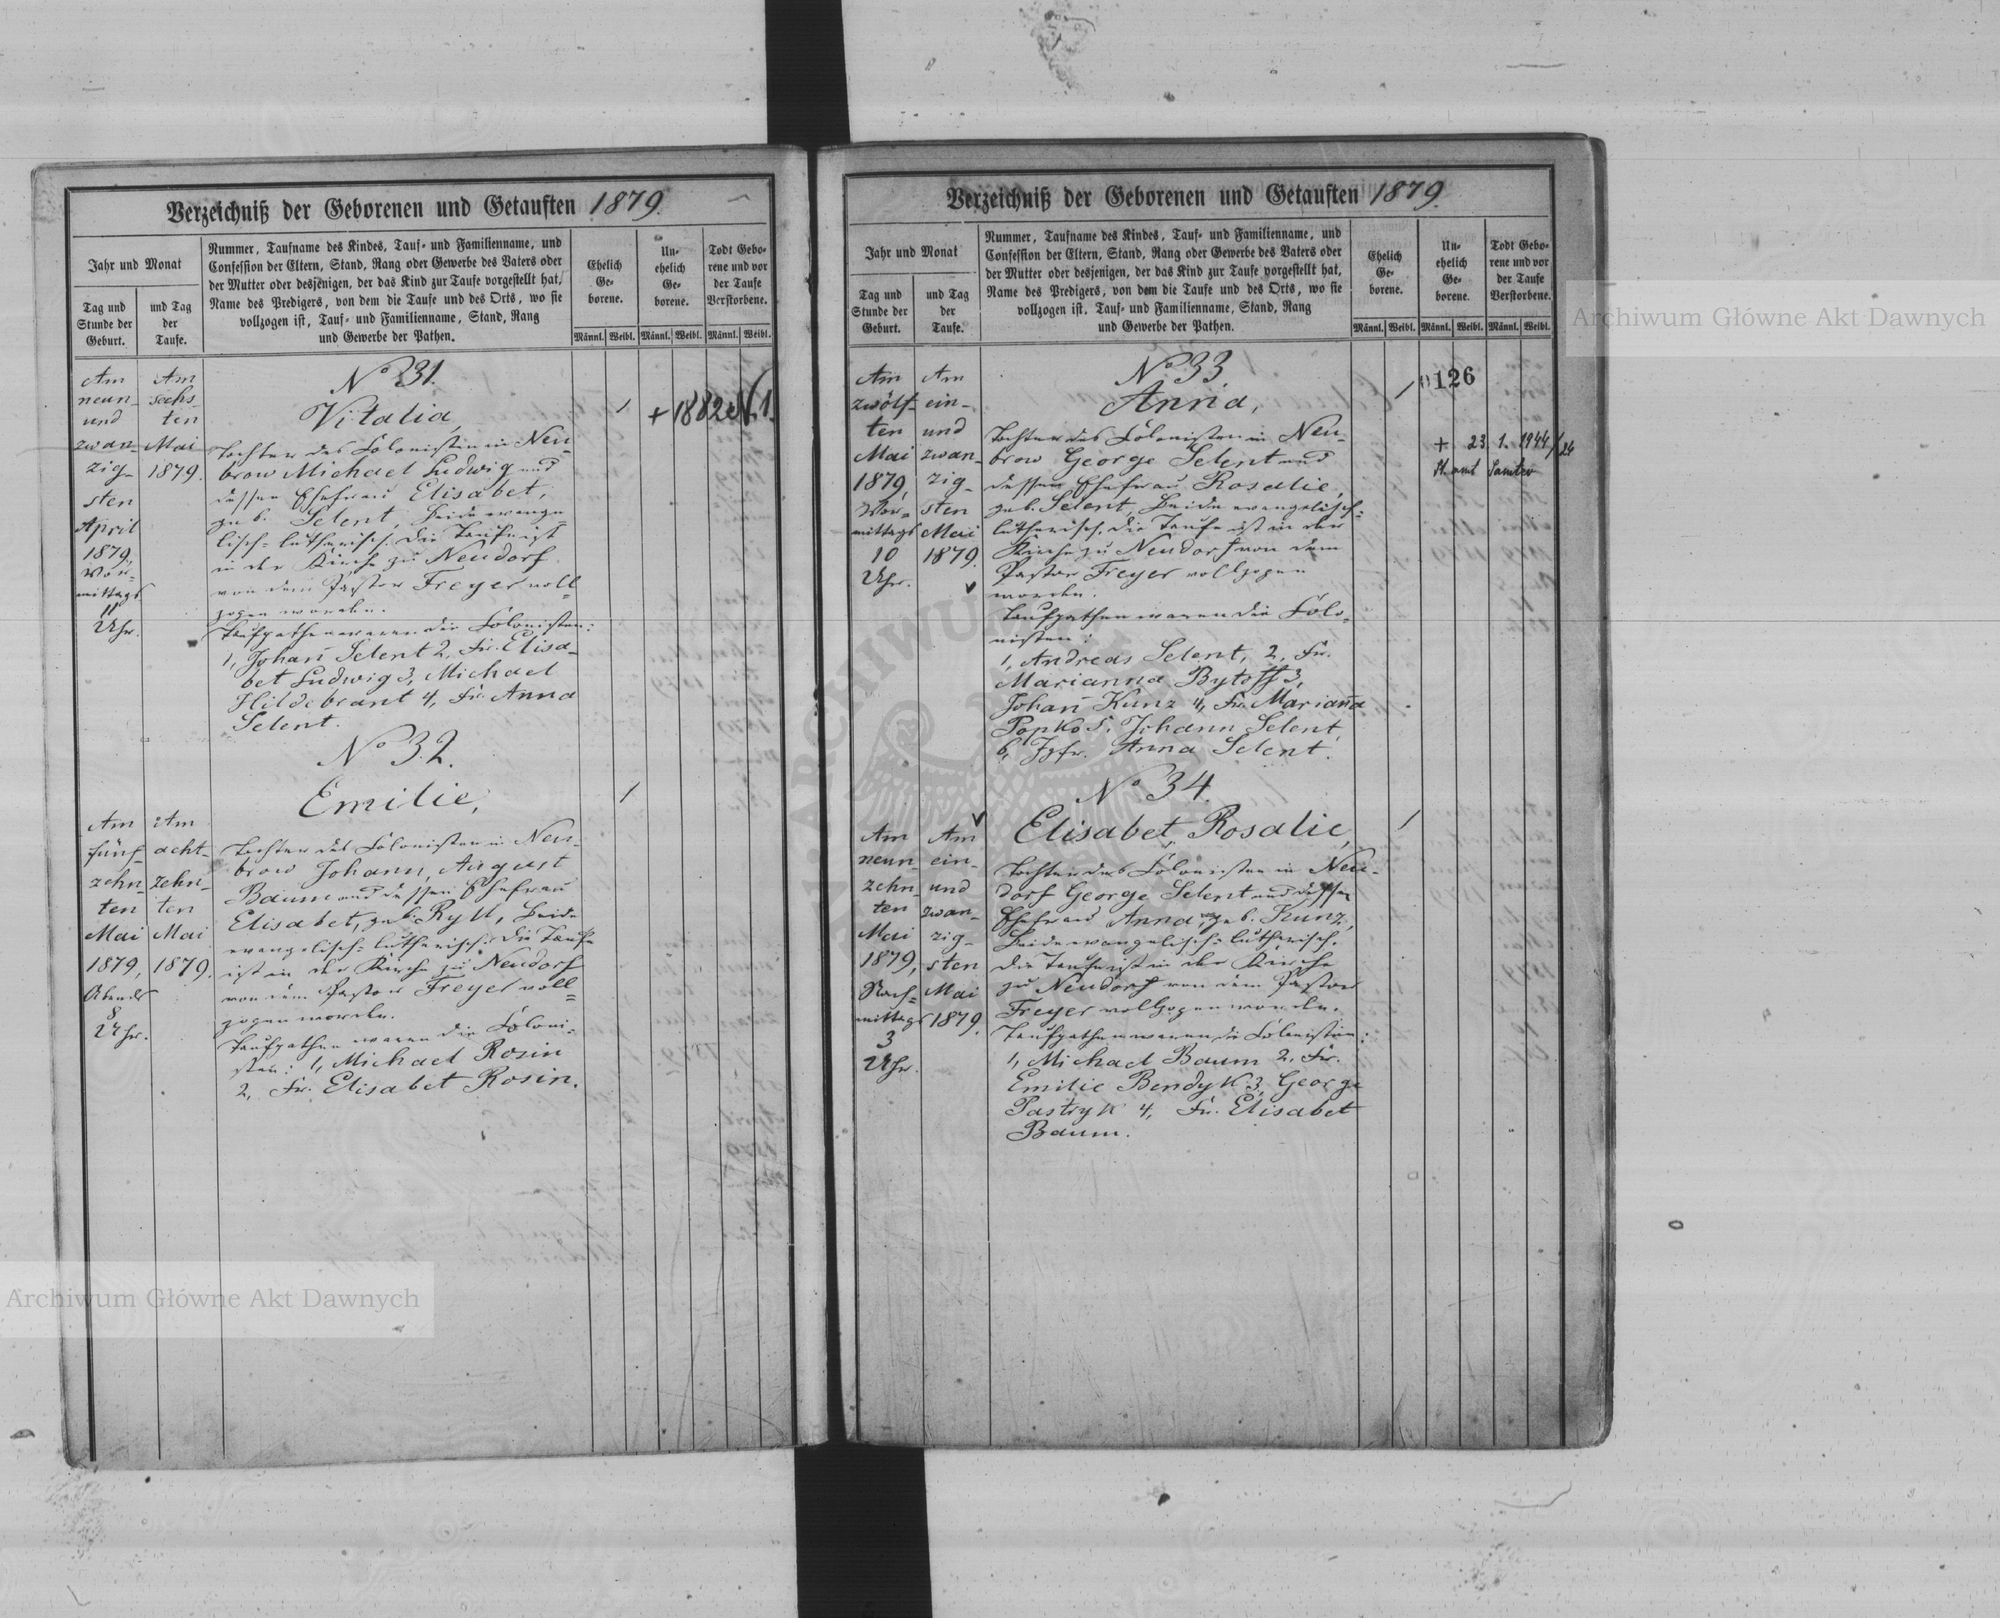 Verzeichniß der Geborenen und Getauften 1879.
Jahr und Monat
Tag und
Stunde der
Geburt.
und Tag
der
Taufe.
Nummer, Taufname des Kindes, Tauf- und Familienname, und
Confession der Eltern, Stand, Rang oder Gewerbe des Vaters oder
der Mutter oder desjenigen, der das Kind zur Taufe vorgestellt hat,
Name des Predigers, von dem die Taufe und des Orts, wo sie
vollzogen ist, Tauf- und Familienname, Stand, Rang
und Gewerbe der Pathen.
Ehelich
Ge-
borene.
Un-
ehelich
Ge-
borene.
Todt Gebo-
rene und vor
der Taufe
Verstorbene.
Männl. Weibl. Männl. Weibl. Männl. Weibl.
Am
neun-
und
zwan-
zig-
sten
April
1879,
Vor-
mittags
11
Uhr.
Am
sechs
ten
Mai
1879.
No 31.
Vitalia,
Tochter des Colonisten in Neu-
brow Michael Ludwig und
dessen Ehefrau Elisabet,
geb. Selent, Beide evange-
lisch=lutherisch. Die Taufe ist
in der Kirche zu Neudorf
von dem Pastor Freyer voll=
zogen worden.
Taufpathen waren die Colonisten:
1, Johan̄ Selent 2, Fr. Elisa-
bet Ludwig 3, Michael
Hildebrant 4, Fr. Anna
Selent.
1
+ 1882 N. 1.
Am
fünf-
zehn
ten
Mai
1879,
Abends
8
Uhr.
Am
acht-
zehn-
ten
Mai
1879.
No 32.
Emilie,
Tochter des Colonisten in Neu-
brow Johann, August
Baum und dessen Ehefrau
Elisabet, geb. Ryll, Beide
evangelisch=lutherisch. Die Taufe
ist in der Kirche zu Neudorf
von dem Pastor Freyer voll=
zogen worden.
Taufpathen waren die Coloni-
sten: 1, Michael Rosin
2, Fr. Elisabet Rosin.
1
Verzeichniß der Geborenen und Getauften 1879.
Jahr und Monat
Tag und
Stunde der
Geburt.
und Tag
der
Taufe.
Nummer, Taufname des Kindes, Tauf- und Familienname, und
Confession der Eltern, Stand, Rang oder Gewerbe des Vaters oder
der Mutter oder desjenigen, der das Kind zur Taufe vorgestellt hat,
Name des Predigers, von dem die Taufe und des Orts, wo sie
vollzogen ist. Tauf- und Familienname, Stand, Rang
und Gewerbe der Pathen.
Ehelich
Ge-
borene.
Un-
ehelich
Ge-
borene.
Todt Gebo-
rene und vor
der Taufe
Verstorbene.
Männl. Weibl. Männl. Weibl. Männl. Weibl.
Am
zwölf-
ten
Mai
1879,
Vor-
mittags
10
Uhr.
Am
ein-
und
zwan-
zig-
sten
Mai
1879.
No 33.
Anna,
Tochter des Colonisten in Neu-
brow George Selent und
dessen Ehefrau Rosalie,
geb. Selent, Beide evangelisch=
lutherisch. Die Taufe ist in der
Kirche zu Neudorf von dem
Pastor Freyer vollzogen
worden.
Taufpathen waren die Colo-
nisten:
1, Andreas Selent, 2, Fr.
Marianna Bytoff 3,
Johan̄ Kunz 4, Fr. Marian̄a
Popko 5, Johann Selent
6, Jgfr. Anna Selent.
1
0126
+ 23. 1. 1944 / 24
St. amt
Am
neun
zehn
ten
Mai
1879,
Nach-
mittags
3
Uhr.
Am
ein-
und
zwan-
zig-
sten
Mai
1879.
No 34.
Elisabet, Rosalie,
Tochter des Colonisten in Neu-
dorf George Selent und dessen
Ehefrau Anna, geb. Kunz,
Beide evangelisch=lutherisch.
Die Taufe ist in der Kirche
zu Neudorf von dem Pastor
Freyer vollzogen worden.
Taufpathen waren die Colonisten:
1, Michael Baum 2, Fr.
Emilie Bendyk 3, George
Pastryk 4, Fr. Elisabet
Baum.
1
Archiwum Główne Akt Dawnych
Archiwum Główne Akt Dawnych